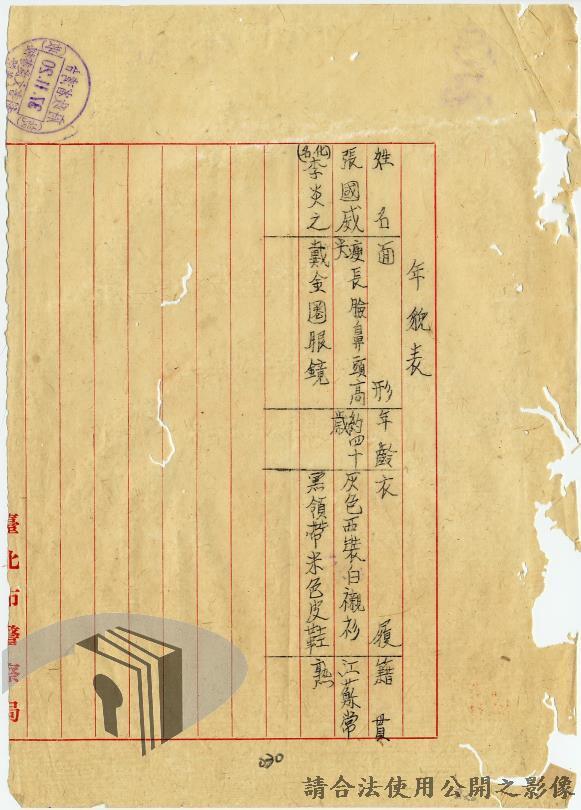 年貌表
姓名 面形 年齡 衣履 籍貫
張國威 瘦長臉鼻頭高 約四十 灰色西裝白襯衫 江蘇常
尖 歲
(化名)李炎之 戴金圈眼鏡 黑領帶米色皮鞋 熟
臺北市警察局
030
請合法使用公開之影像